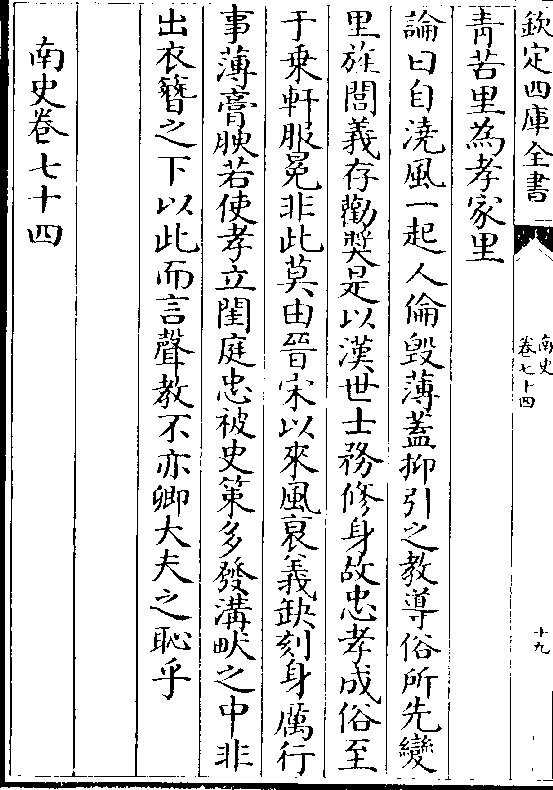 欽定四庫全書
南史
卷七十四
十九
青苦里為孝家里
論曰自澆風一起人倫毀薄蓋抑引之教導俗所先變
里旌閭義存勸奬是以漢世士務修身故忠孝成俗至
于乗軒服冕非此莫由晉宋以來風衰義缺刻身厲行
事薄膏腴若使孝立閨庭忠被史策多發溝畎之中非
出衣簪之下以此而言聲教不亦卿大夫之恥乎
南史卷七十四